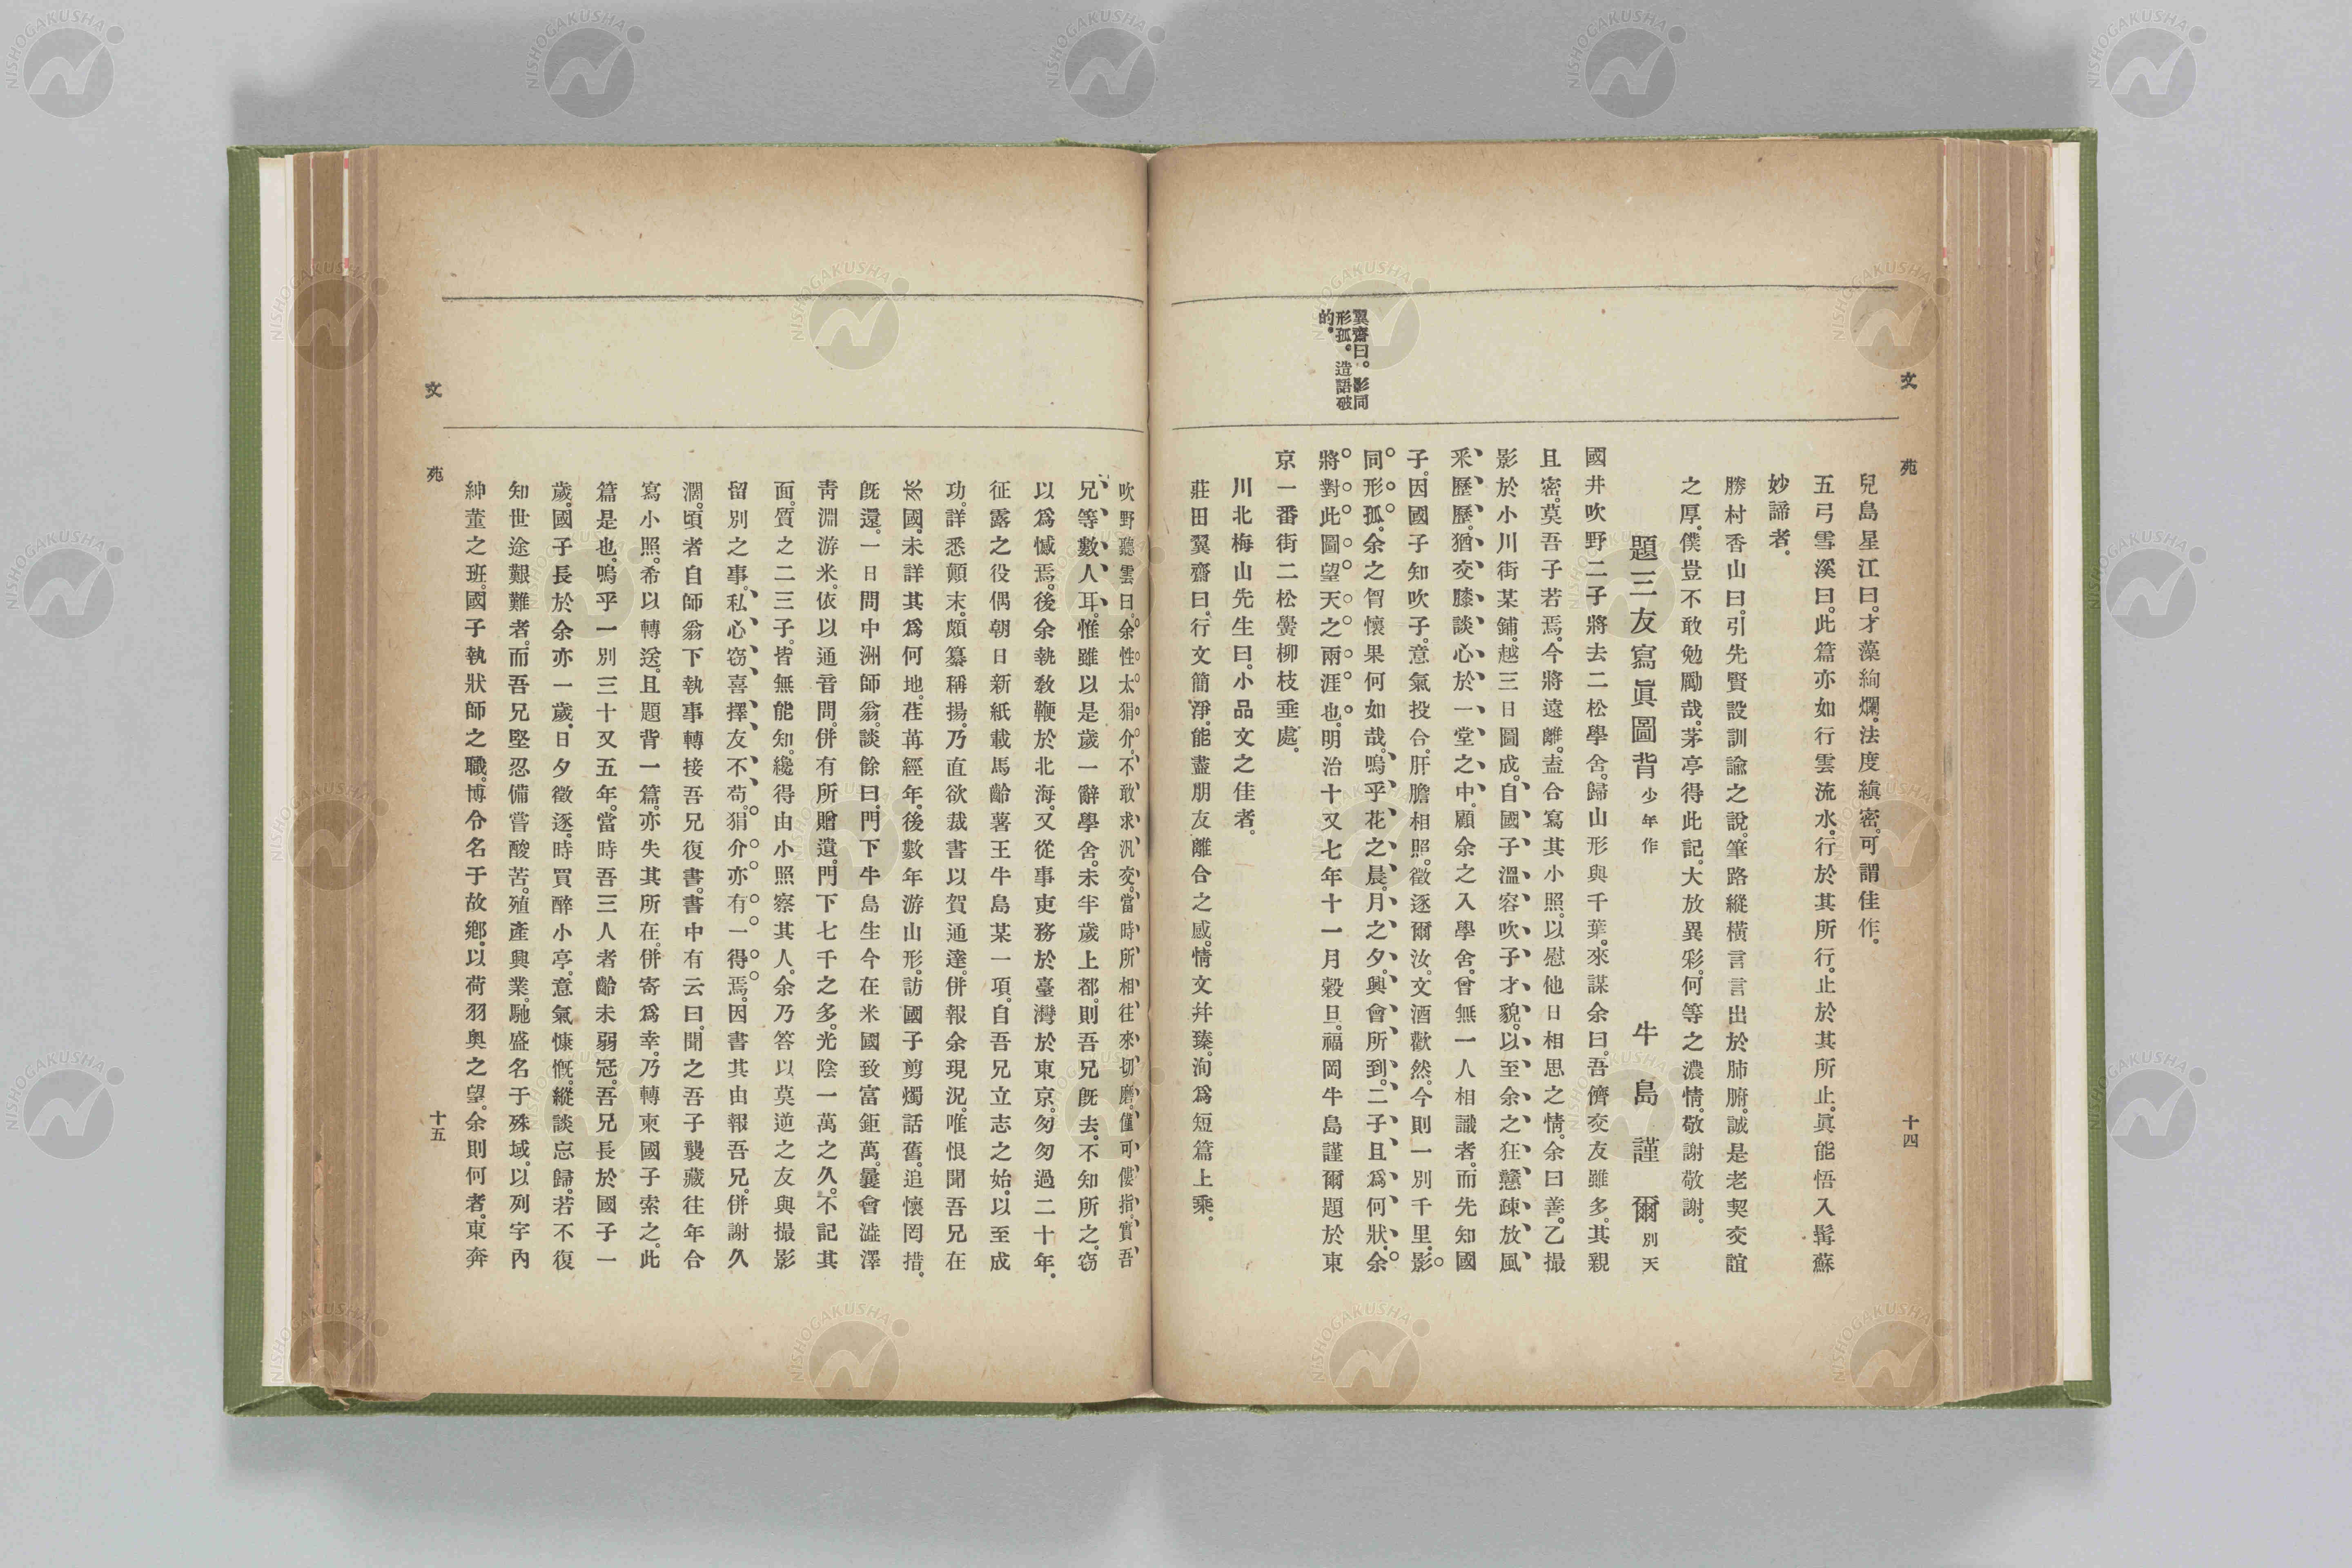 文苑
十四
兒島星江曰。才藻絢爛。法度縝密。可謂佳作。
五弓雪溪曰。此篇亦如行雲流水。行於其所行。止於其所止。眞能悟入髯蘇
妙諦者。
勝村香山曰。引先賢設訓諭之說。筆路縱橫言言出於肺腑。誠是老契交誼
之厚。僕豈不敢勉勵哉。茅亭得此記。大放異彩。何等之濃情。敬謝敬謝。
題三友寫眞圖背 少年作 牛島謹爾 別天
國井吹野二子將去二松學舍。歸山形與千葉。來謀余曰。吾儕交友雖多。其親
且密。莫吾子若焉。今將遠離。盍合寫其小照。以慰他日相思之情。余曰善。乙撮
影於小川街某鋪。越三日圖成。自國子溫容吹子才貌。以至余之狂戇疎放。風
釆歷歷。猶交膝談心於一堂之中。顧余之入學舍。曾無一人相識者。而先知國
子。因國子知吹子。意氣投合。肝膽相照。徵逐爾汝。文酒歡然。今則一別千里。影
同形孤。余之胷懷果何如哉。嗚乎花之晨。月之夕。興會所到。二子且爲何狀。余
將對此圖望天之兩涯也。明治十又七年十一月穀旦。福岡牛島謹爾題於東
京一番街二松黌柳枝垂處。
翼齋曰。影同
形孤。造語破
的。
川北梅山先生曰。小品文之佳者。
莊田翼齋曰。行文簡淨。能盡朋友離合之感。情文幷臻。洵爲短篇上乘。
吹野聽雲曰。余性太狷介。不敢求汎交。當時所相往來切磨。僅可僂指。實吾
兄等數人耳。惟雖以是歲一辭學舍。未半歲上都。則吾兄旣去。不知所之。窃
以爲憾焉。後余執敎鞭於北海。又從事吏務於臺灣於東京。匆匆過二十年。
征露之役偶朝日新紙載馬齡薯王牛島某一項。自吾兄立志之始。以至成
功。詳悉顚末。頗纂稱揚。乃直欲裁書以賀通達。併報余現況。唯恨聞吾兄在
米國。未詳其爲何地。荏苒經年。後數年游山形。訪國子剪燭話舊。追懷罔措。
旣還。一日問中洲師翁。談餘曰。門下牛島生今在米國致富鉅萬。曩會澁澤
靑淵游米。依以通音問。併有所贈遺。門下七千之多。光陰一萬之久。不記其
面。質之二三子。皆無能知。纔得由小照察其人。余乃答以莫逆之友與撮影
留別之事。私心窃喜擇友不苟。狷介亦有一得焉。因書其由報吾兄。併謝久
濶。頃者自師翁下執事轉接吾兄復書。書中有云曰。聞之吾子襲藏往年合
寫小照。希以轉送。且題背一篇。亦失其所在。併寄爲幸。乃轉柬國子索之。此
篇是也。嗚乎一別三十又五年。當時吾三人者齡未弱冠。吾兄長於國子一
歲。國子長於余亦一歲。日夕徵逐。時買醉小亭。意氣慷慨。縱談忘歸。若不復
知世途艱難者。而吾兄堅忍備嘗酸苦。殖產興業。馳盛名于殊域。以列宇內
紳董之班。國子執狀師之職。博令名于故鄕。以荷羽奥之望。余則何者。東奔
文苑
十五